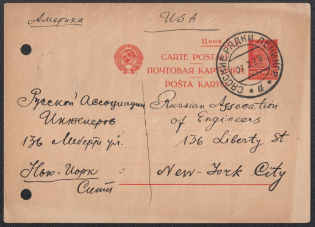 Америка USA
Цена
CARTE POSTALE
ПОЧТОВАЯ КАРТОЧКА
POŜTA KARTO
СЯССКИЕ РЯДКИ ЛЕНИНГР.
Русской Ассоциации
Инженеров
136 Либерти ул.
Нью-Иорк
Сштa
Russian Association
of Engineers
136 Liberty St
New-York City